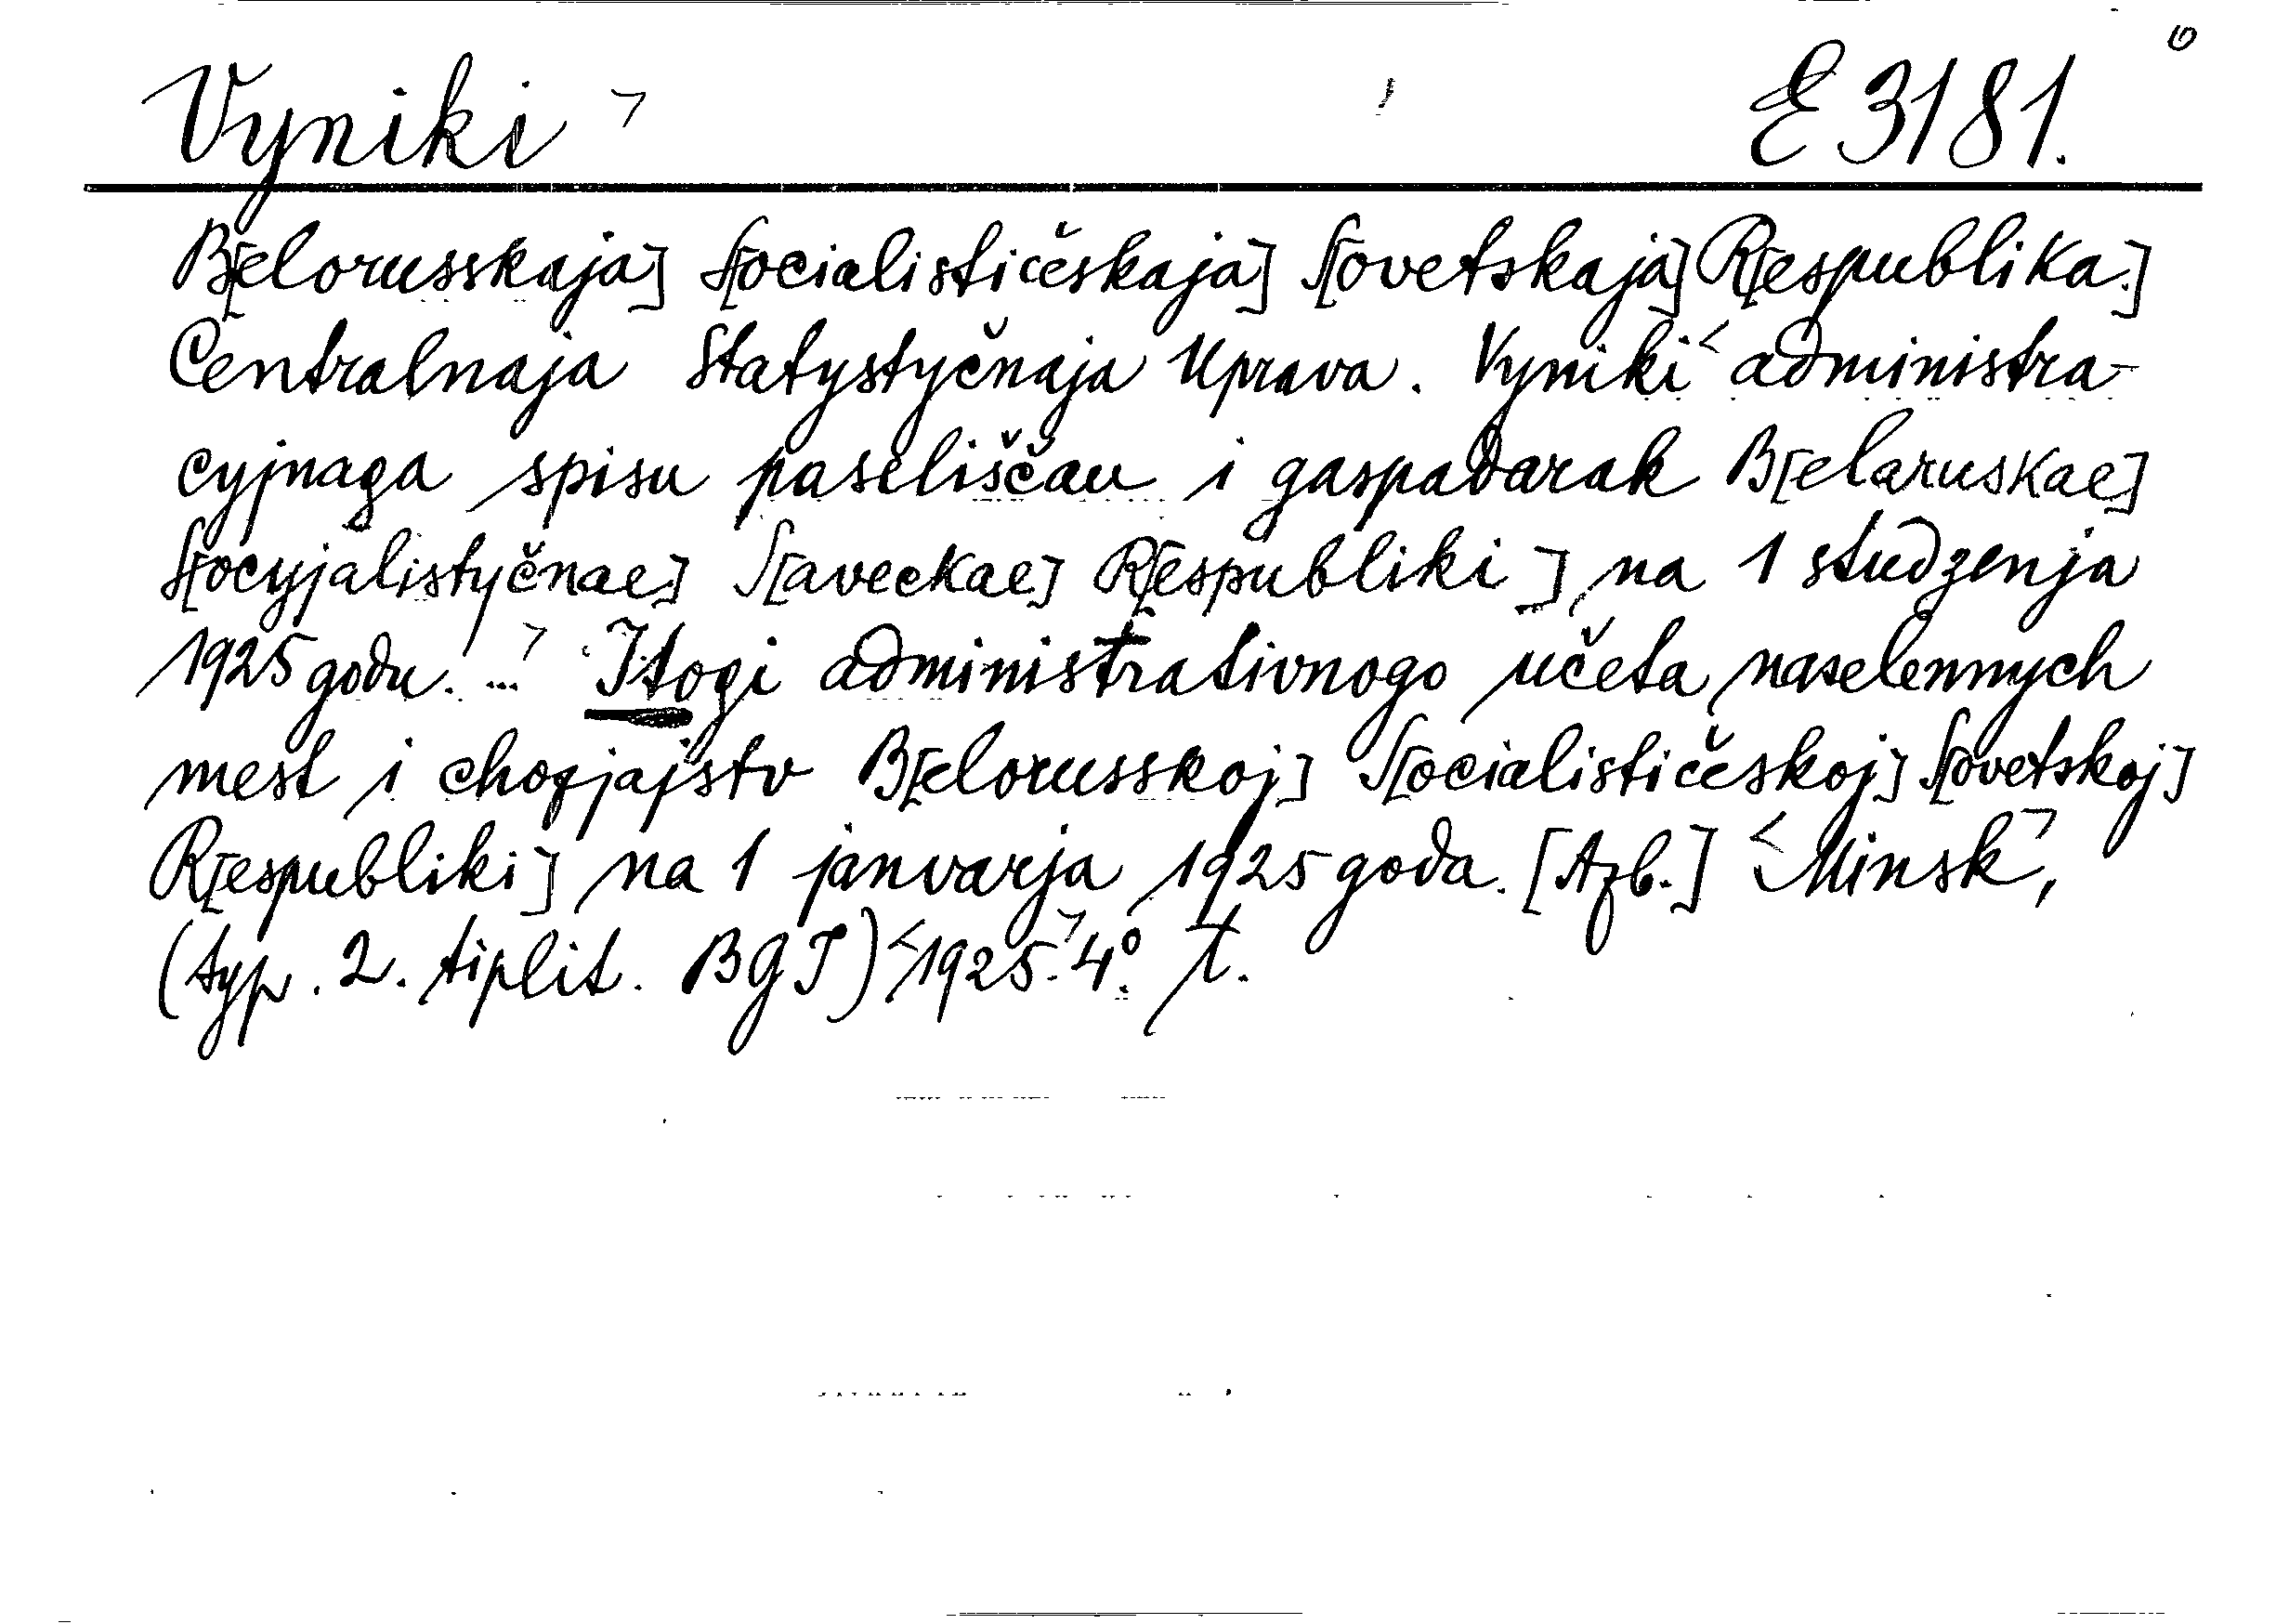 Vyniki E 3181.
B[elorusskaja] S[ocialističeskaja] S[ovetskaja] R[espublika.]
Centralnaja Statystyčnaja Uprava. Vyniki administra-
cyjnaga spisu paseliščau i gaspadarak B[elaruskae]
S[ocyjalistyčnae] S[aveckae] R[espubliki] na 1 studzenja
1925 godu. ... Itogi administrativnogo učeta naselennych
mest i chozjajstv B[elorusskoj] S[ocialističeskoj] S[ovetskoj]
R[espubliki] na 1 janvarja 1925 goda. [Azb.] Minsk,
(typ. 2. tiplit. BGT) 1925. 4°. T.